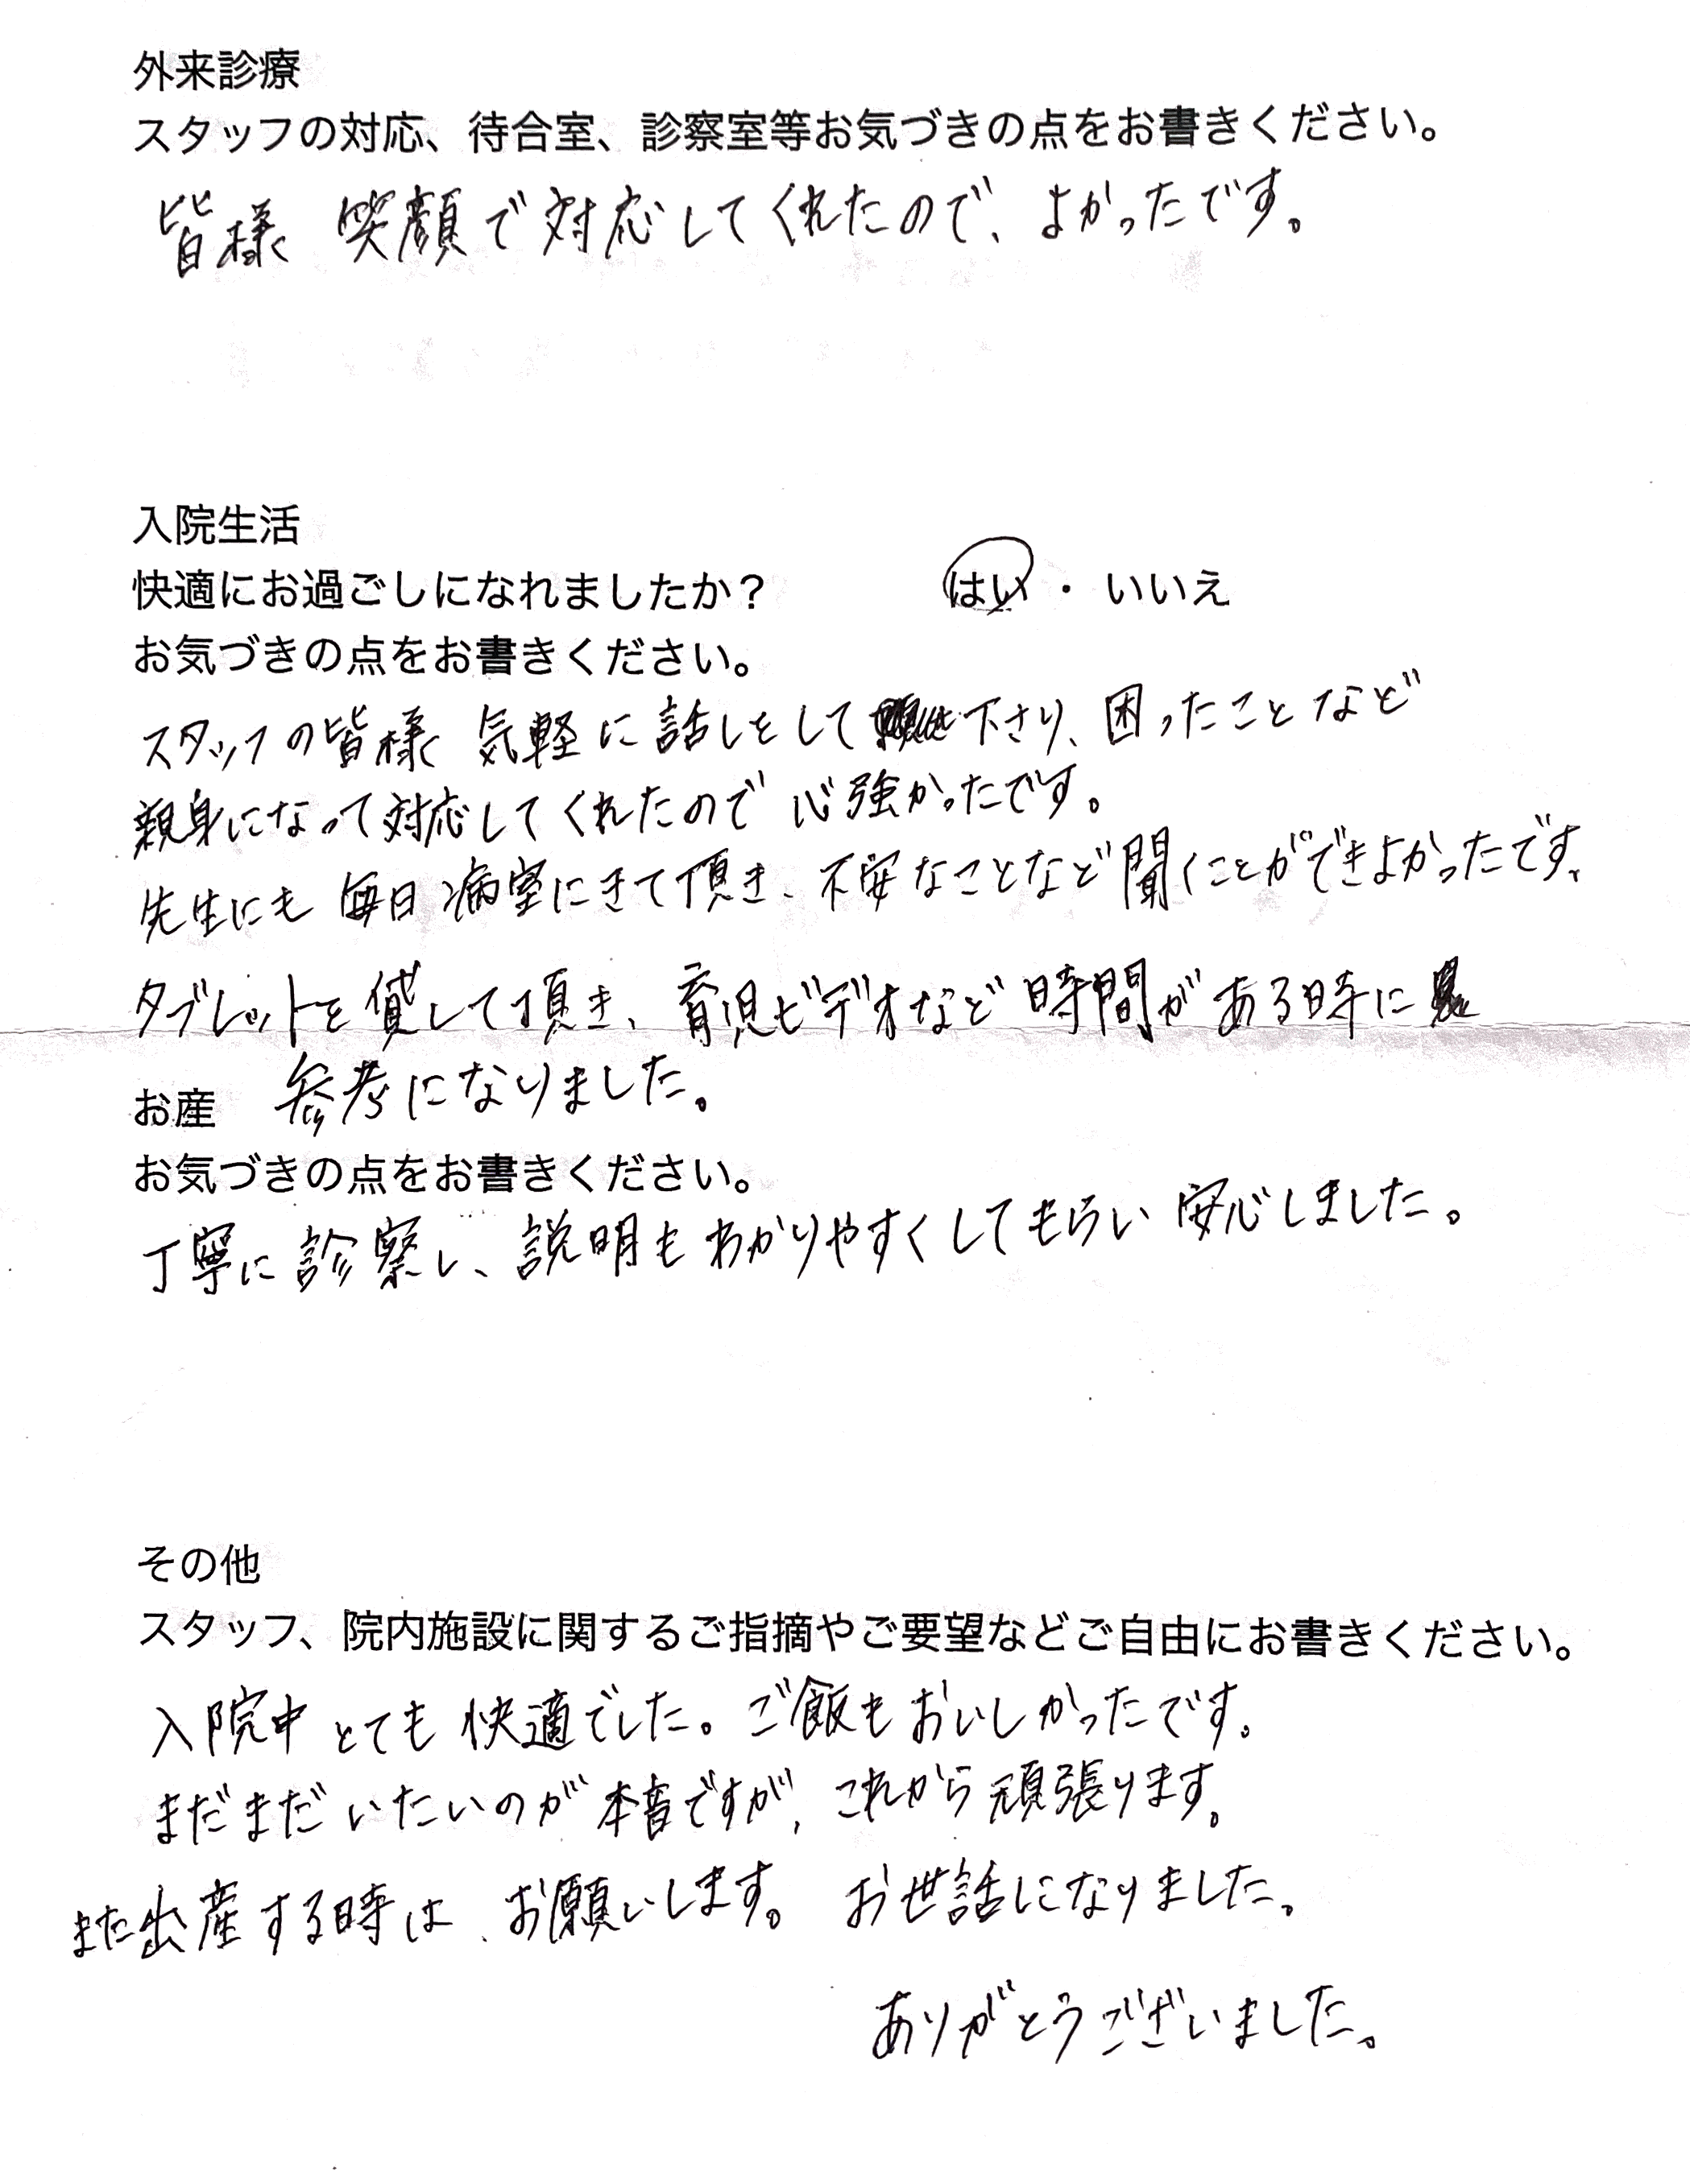 外来診療
スタッフの対応、待合室、診察室等お気づきの点をお書きください。
皆様 笑顔で対応してくれたので、よかったです。
入院生活
快適にお過ごしになれましたか? はい・いいえ
お気づきの点をお書きください。
スタッフの皆様 気軽に話しをして下さり、困ったことなど
親身になって対応してくれたので心強かったです。
先生にも毎日病室にきて頂き、不安なことなど聞くことができよかったです。
タブレットを貸して頂き、育児ビデオなど時間がある時に
参考になりました。
お産
お気づきの点をお書きください。
丁寧に診察し、説明もわかりやすくしてもらい安心しました。
その他
スタッフ、院内施設に関するご指摘やご要望などご自由にお書きください。
入院中とても快適でした。ご飯もおいしかったです。
まだまだいたいのが本音ですが、これから頑張ります。
また出産する時は、お願いします。お世話になりました。
ありがとうございました。